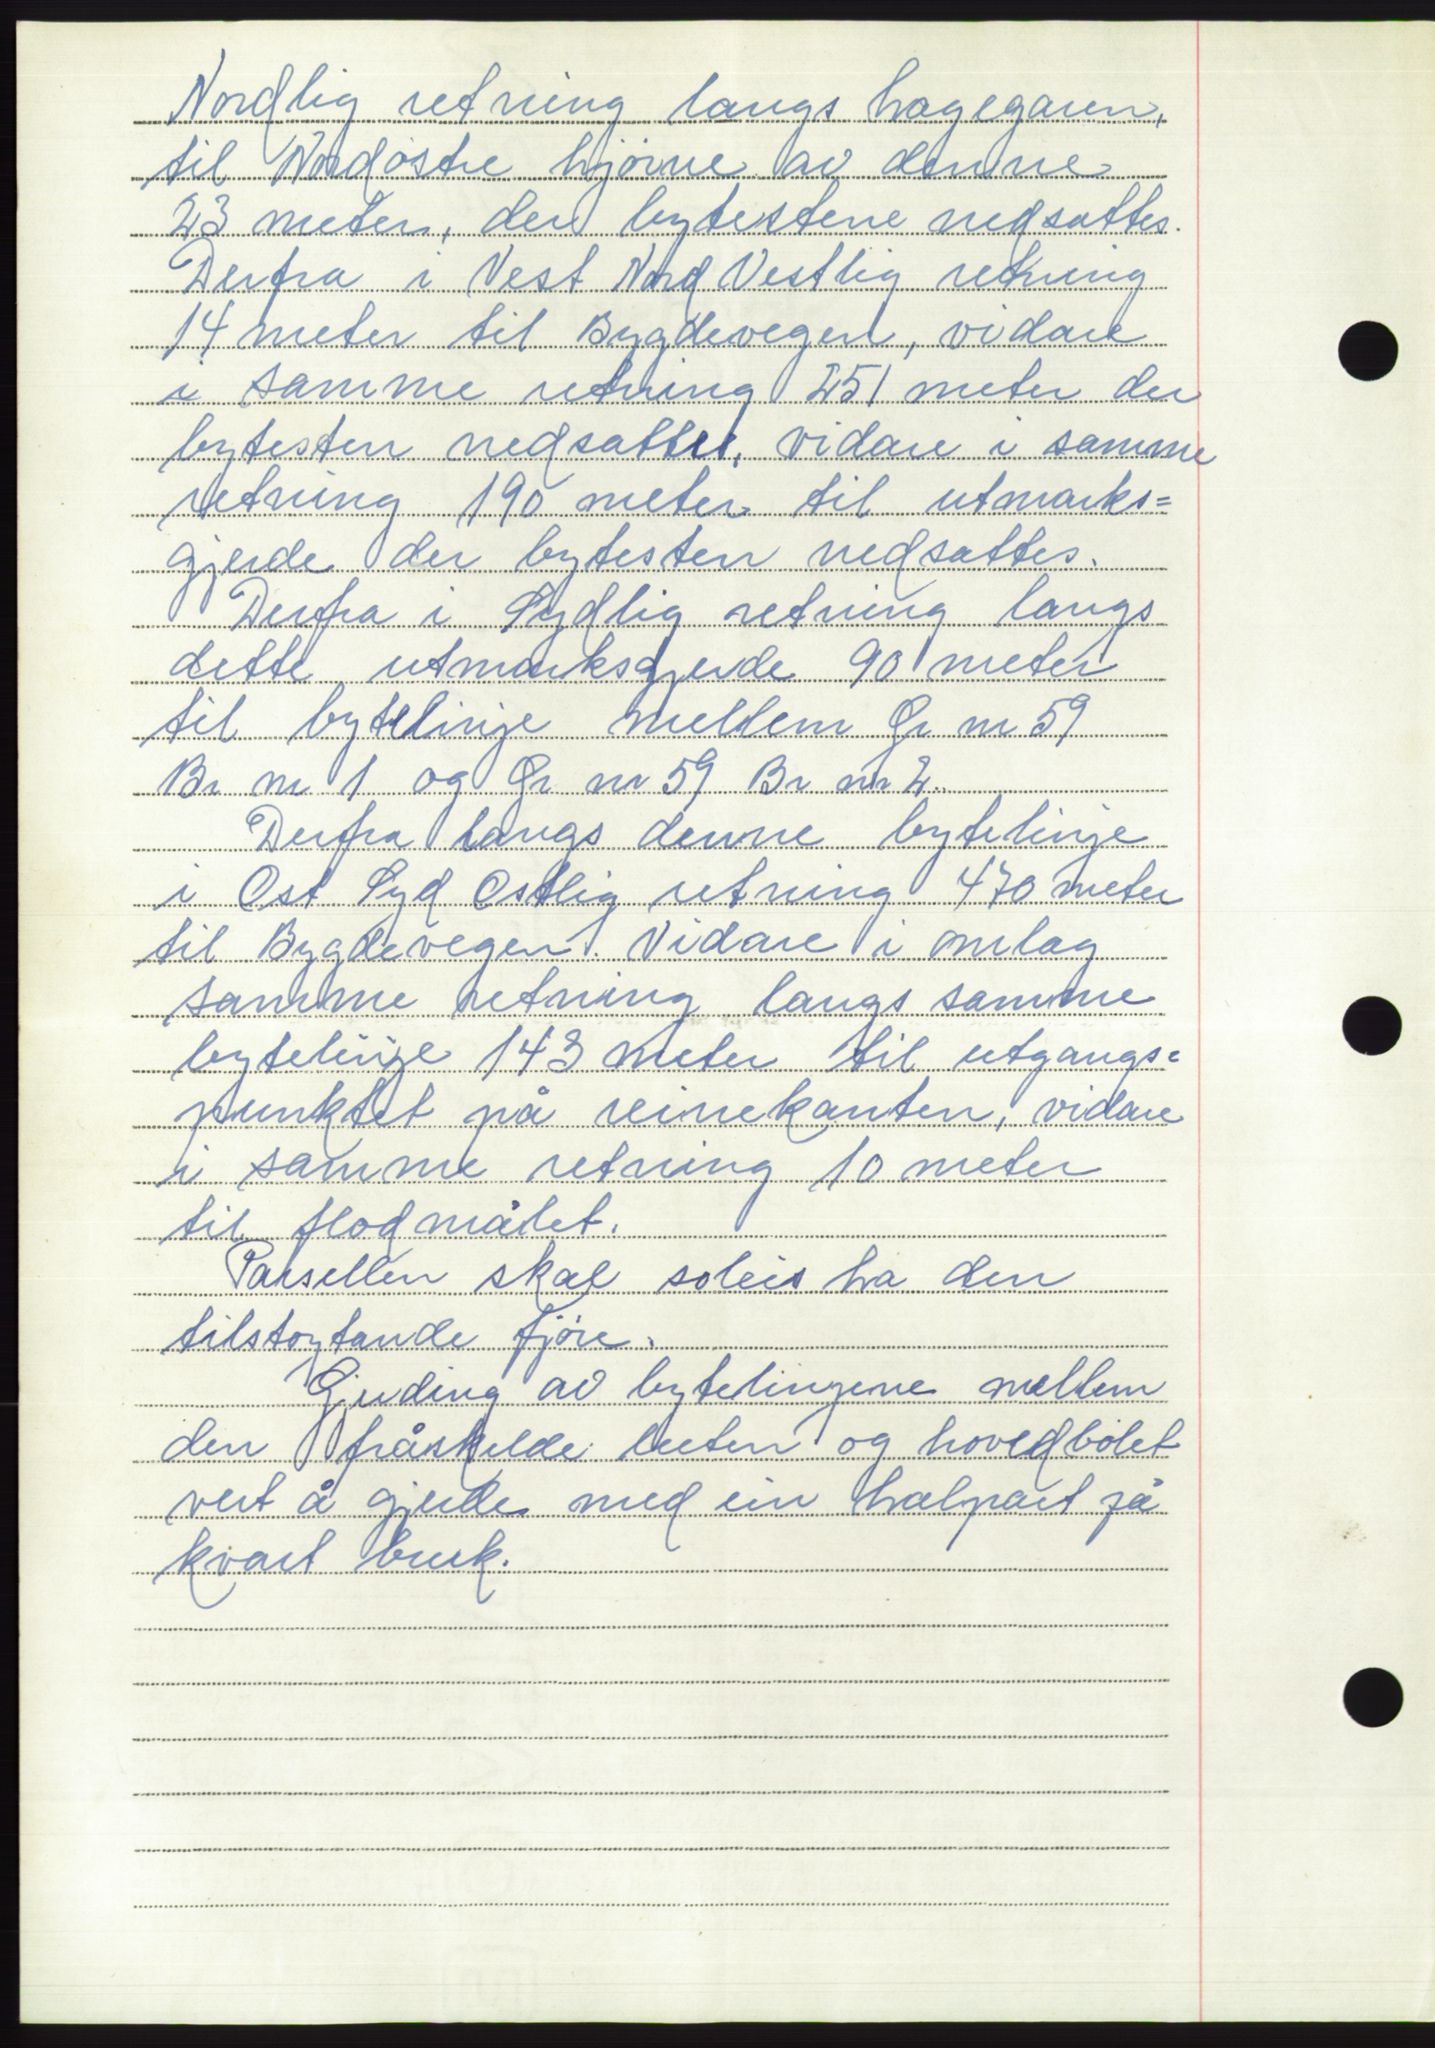 Nordlig retning langs hagegaren,
til Nordöstre hjörne av denne
23 meter, der bytestene nedsattes.
Derfra i Vest Nord Vestlig retning
14 meter til Bygdevegen, vidare
i samme retning 251 meter der
bytesten nedsattes, vidare i samme
retning 190 meter til utmarks=
gjerde der bytesten nedsattes.
Derfra i Sydlig retning langs
dette utmarksgjerde 90 meter
til bytelinje mellem Gr nr 59
Br nr 1 og Gr nr 59 Br nr 2.
Derfra langs denne bytelinje
i Ost Syd Ostlig retning 470 meter
til Bygdevegen. Vidare i omlag
samme retning langs samme
bytelinje 143 meter til utgangs=
punktet på reinekanten, vidare
i samme retning 10 meter
til flodmålet.
Parsellen skal soleis ha den
tilstoytande fjöre.
Gjerding av bytelinjene mellem
den fråskelde luten og hovedbölet
vert å gjerde med ein halpart på
kvart bruk.